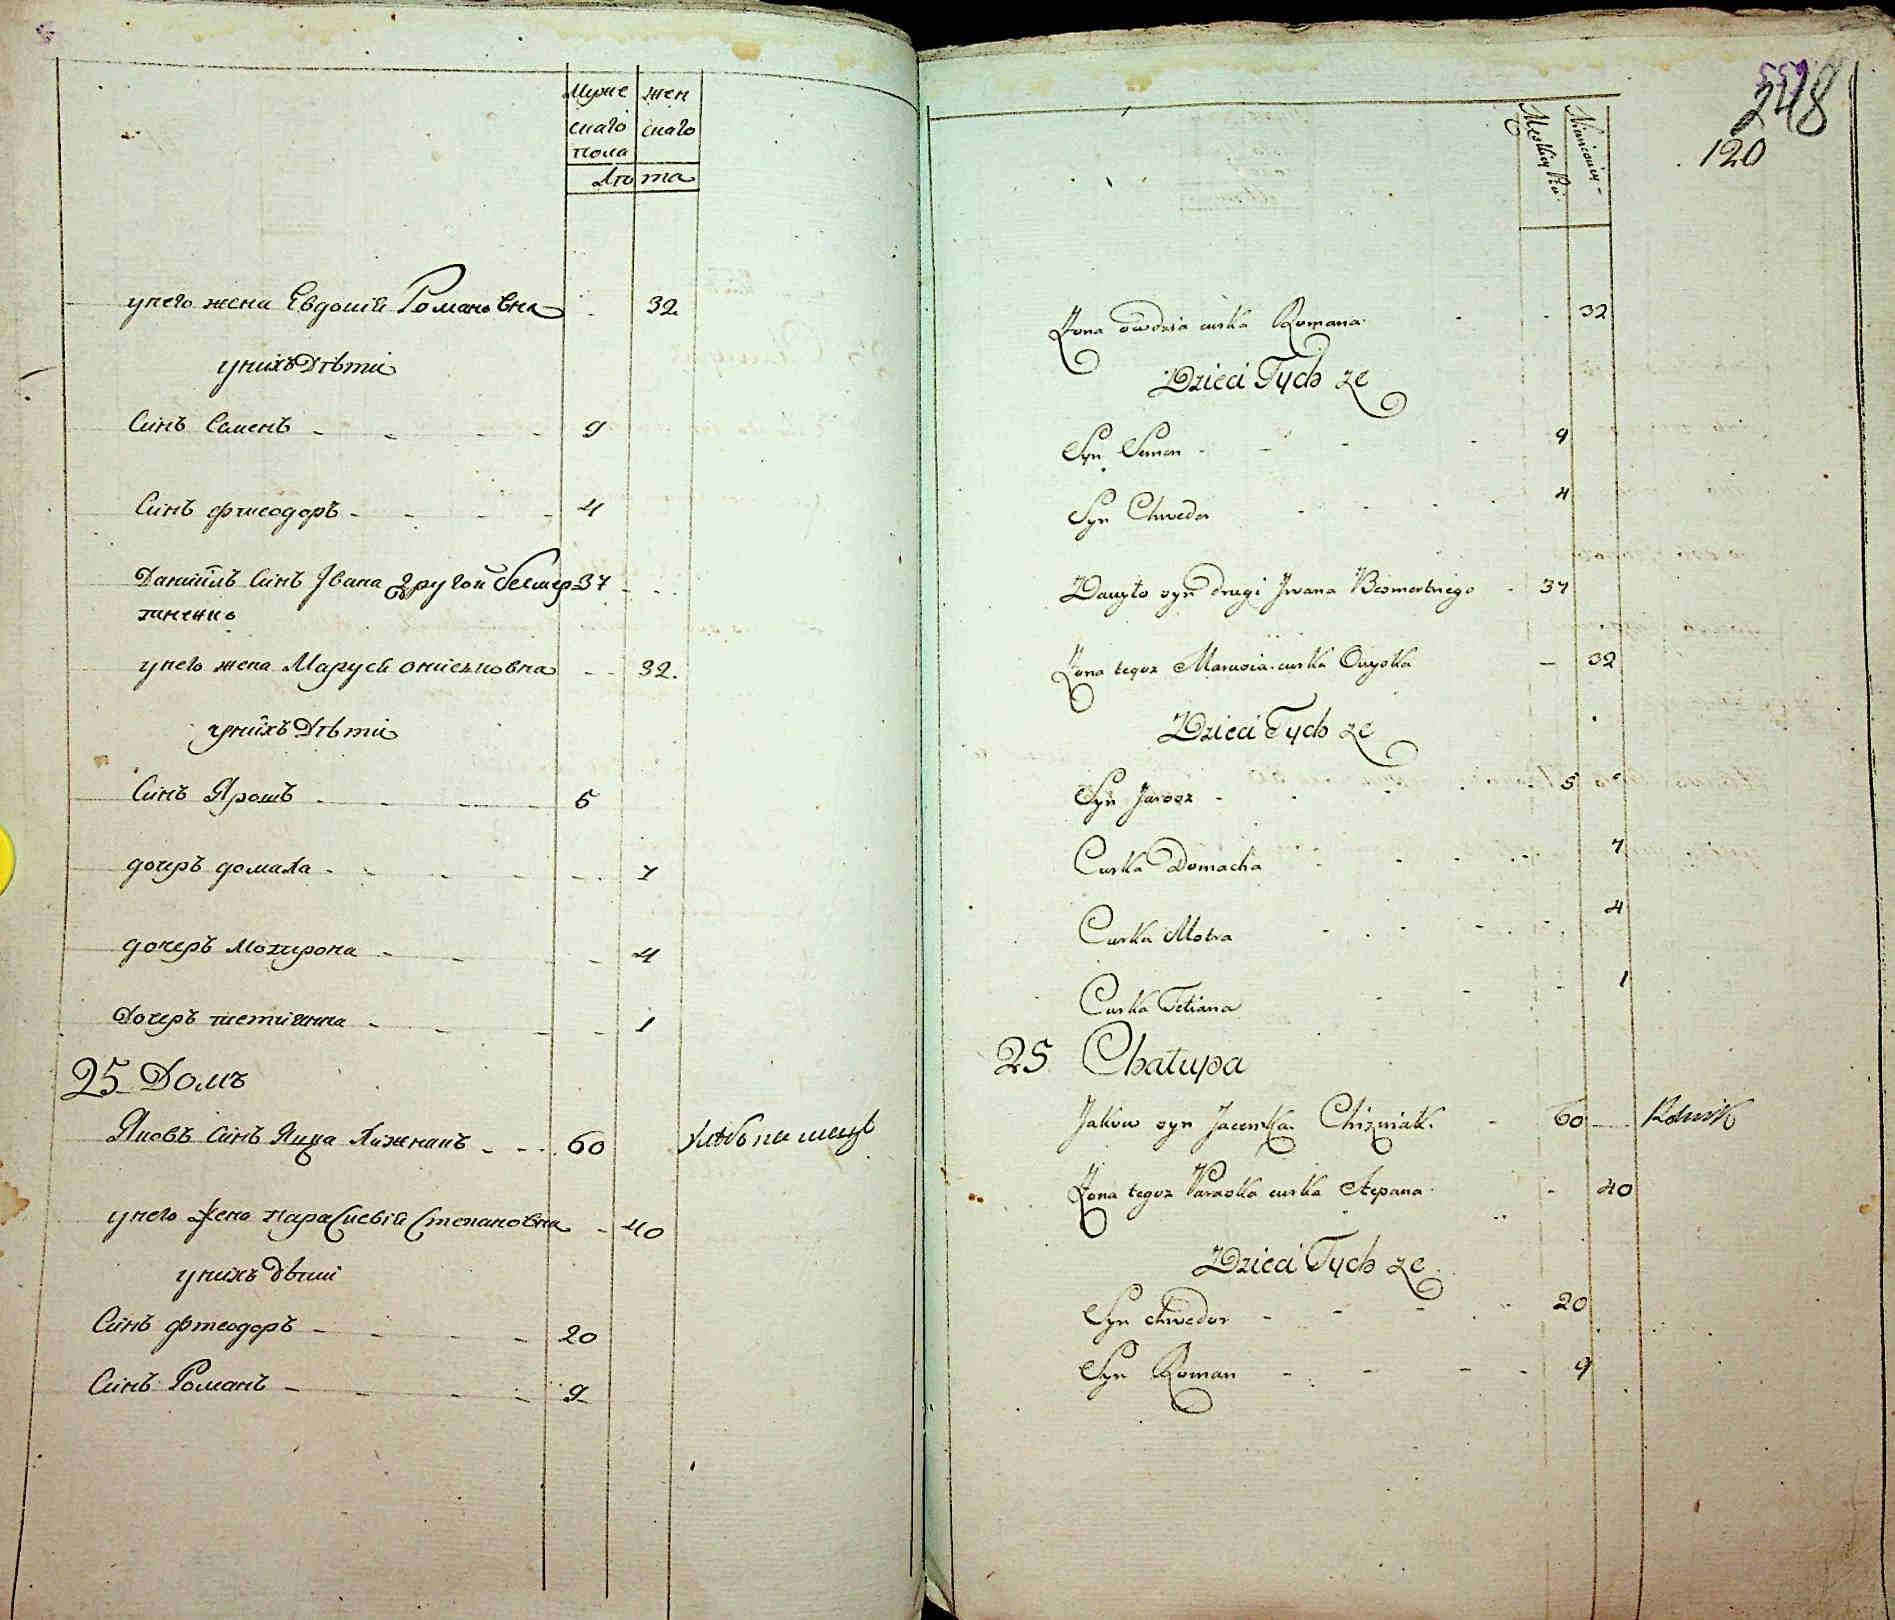 Муже жен
скаго скаго
пола
Лѣта
у него жена Евдокiя Романовна 32
у нихъ Дѣти
Синъ Семенъ 9
Синъ Фтеодоръ 4
Данiилъ Синъ Ивана другой Бесмер 37
тненко
у него жена Маруся Онисковна 32
у нихъ Дѣти
Синъ Ярошъ 5
дочеръ домаха 7
дочеръ Мотирона 4
Дочеръ тетияна 1
25 Домъ
Яковъ Синъ Яцка Хижнакъ 60 хлѣбопашецъ
у него Жена Параскевiя Степановна 40
у нихъ дѣти
Синъ Фтеодоръ 20
Синъ Романъ 9
248
120
Męskiey Płci
Niewieściey
Żona Owdzia curka Romana 32
Dzieci Tych ze
Syn Semen 9
Syn Chwedor 4
Danyło syn drugi Jwana Besmertniego 37
Żona tegoz Marusia curka Onyska 32
Dzieci Tych ze
Syn Jarosz 5
Curka Domacha 7
Curka Motra 4
Curka Tetiana 1
25 Chałupa
Jakow syn Jacenka Chizniak 60 Rolnik
Żona tegoz Paraska curka Stepana 40
Dzieci Tych ze
Syn Chwedor 20
Syn Roman 9